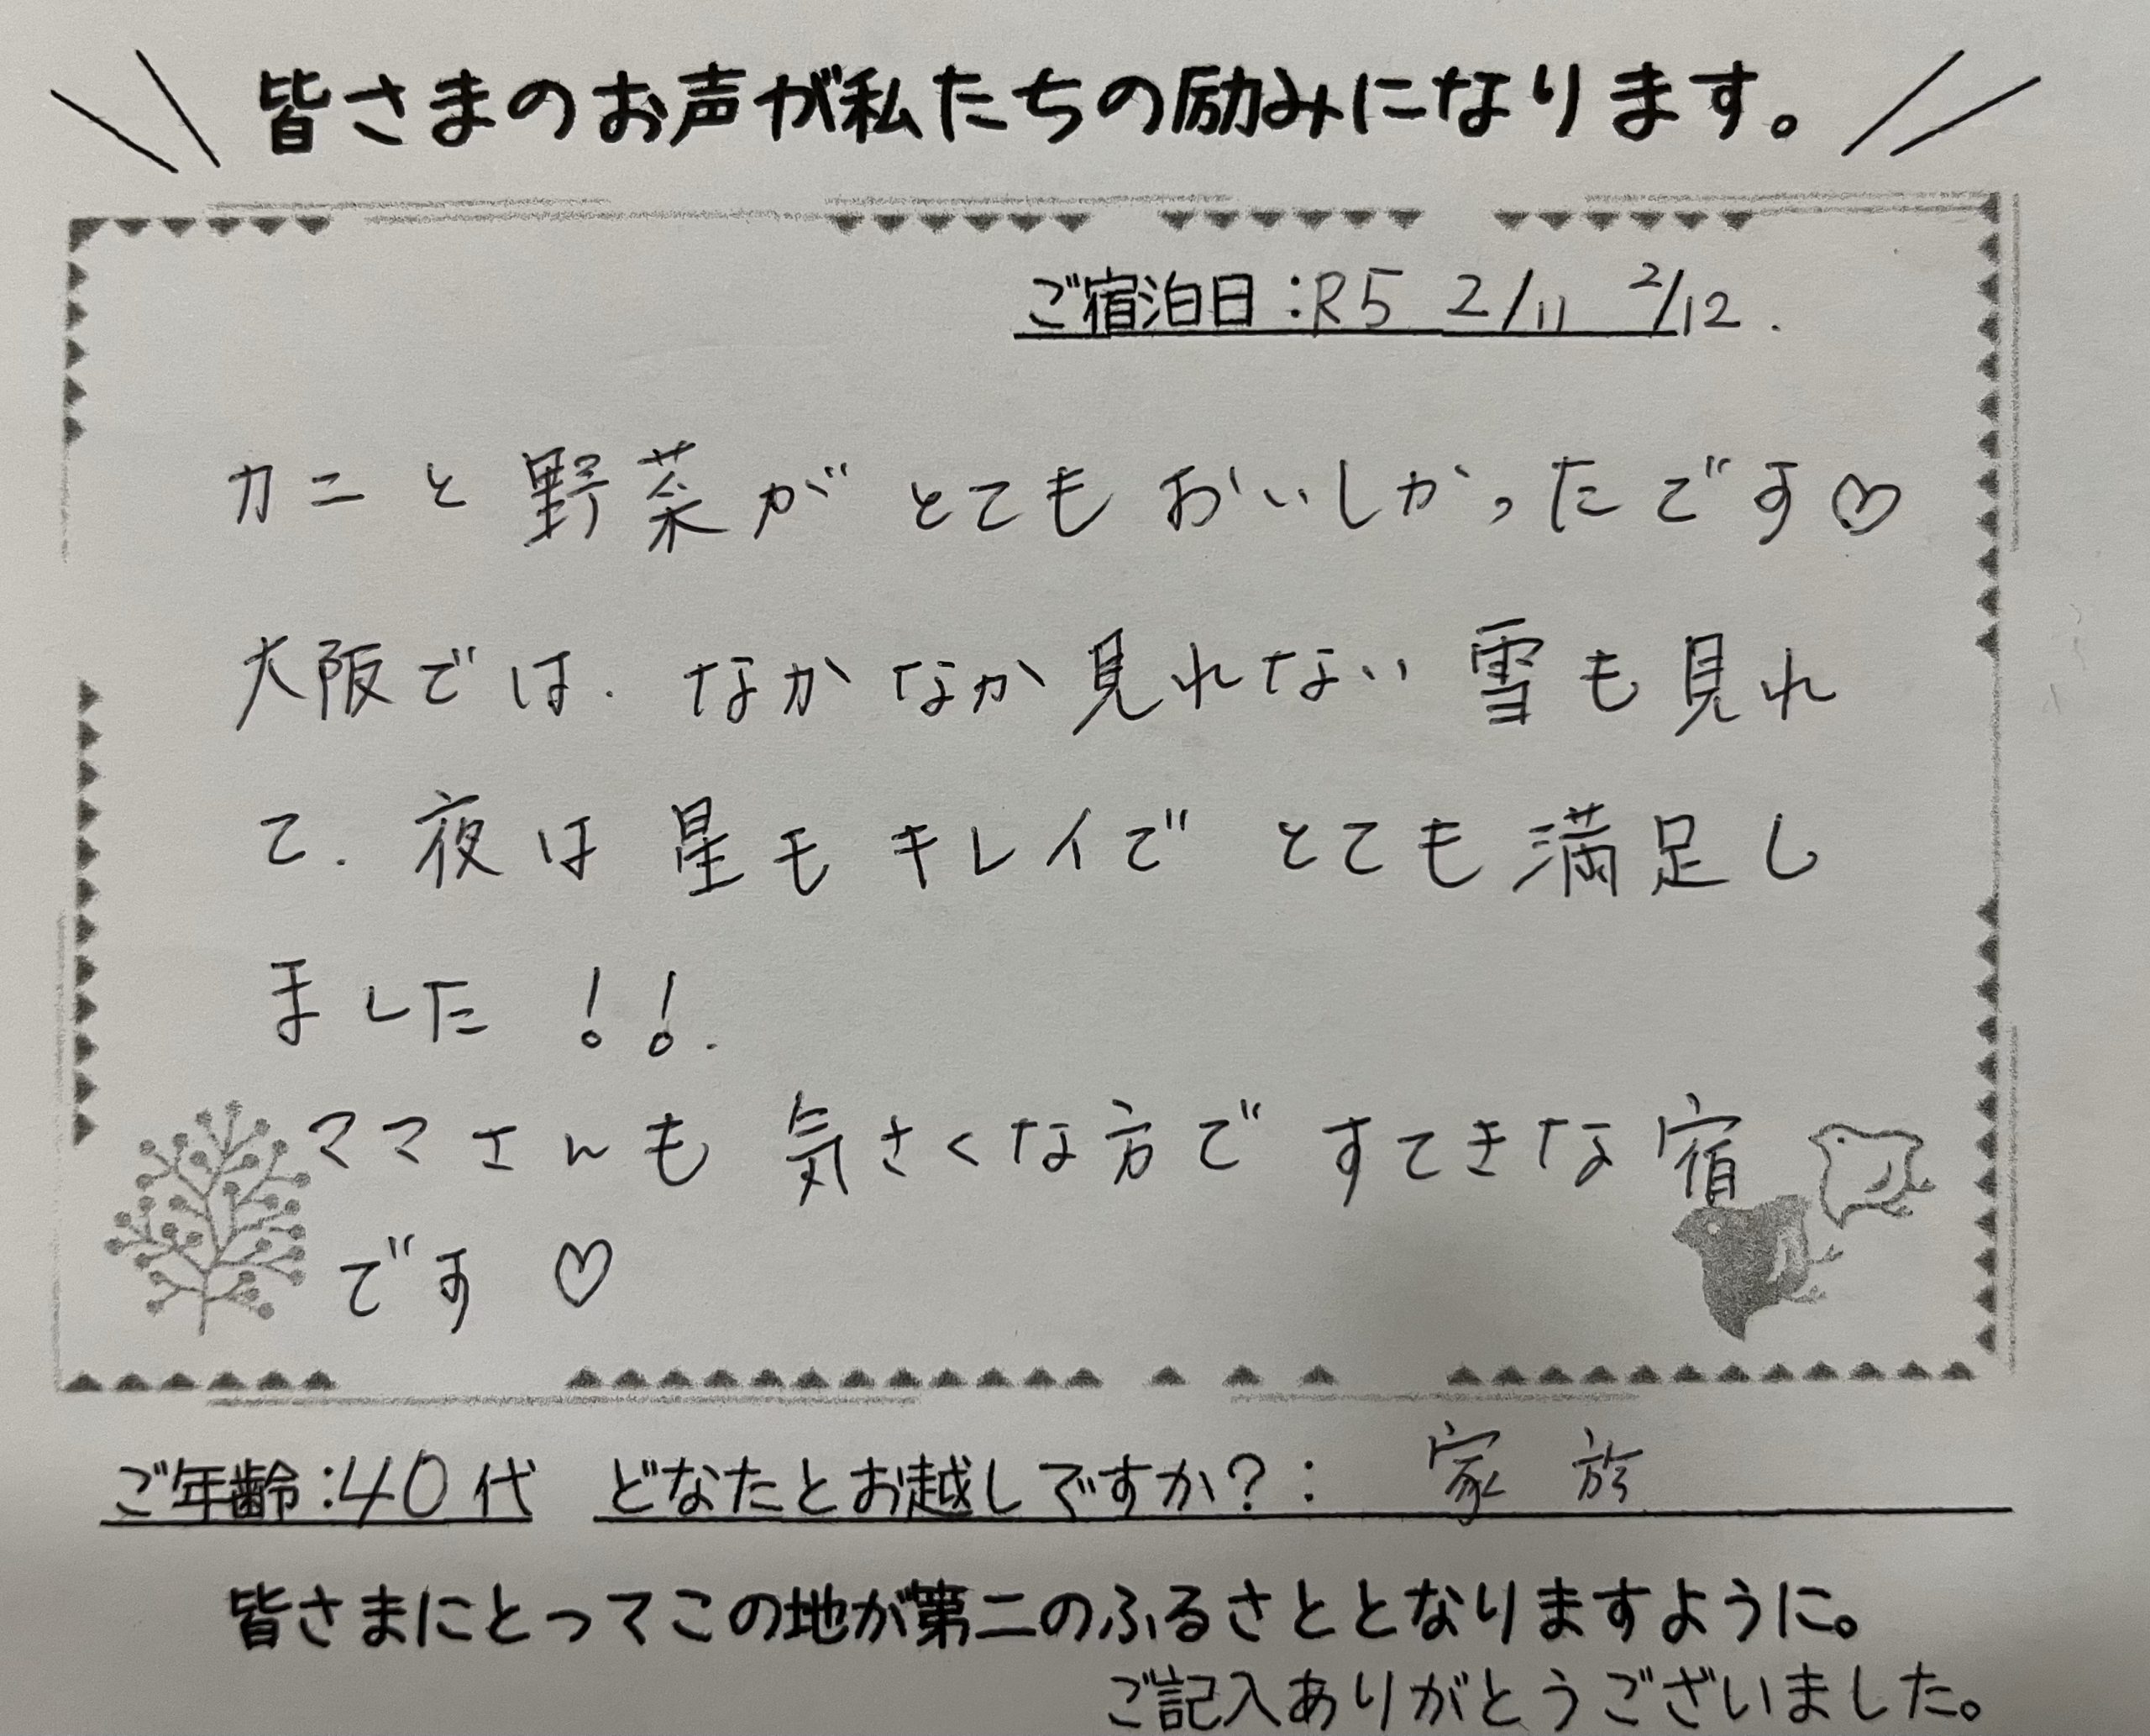 皆さまのお声が私たちの励みになります。
ご宿泊日:R5 2/11 2/12.
カニと野菜がとてもおいしかったです♡
大阪では.なかなか見れない雪も見れ
て.夜は星もキレイでとても満足し
ました!!.
ママさんも気さくな方ですてきな宿
です♡
ご年齢:40代 どなたとお越しですか?: 家族
皆さまにとってこの地が第二のふるさととなりますように。
ご記入ありがとうございました。